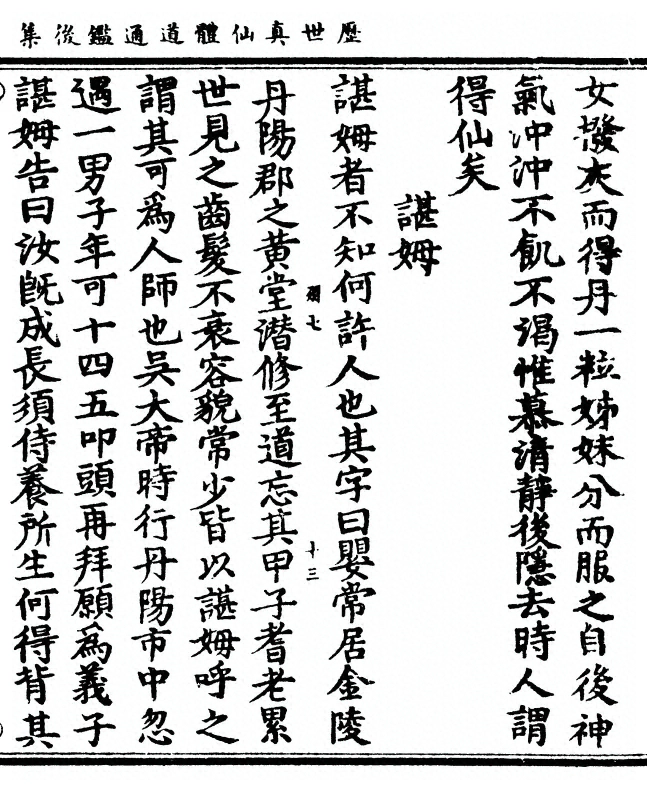 歷世真仙體道通鑑後集
女撥灰而得丹一粒姊妹分而服之自後神
氣沖沖不飢不渴惟慕清靜後隱去時人謂
得仙矣
諶姆
諶姆者不知何許人也其字曰嬰常居金陵
丹陽郡之黃堂潛修至道忘其甲子耆老累
世見之齒髮不衰容貌常少皆以諶姆呼之
謂其可爲人師也吳大帝時行丹陽市中忽
遇一男子年可十四五叩頭再拜願為義子
諶姆告曰汝旣成長須侍養所生何得背其
七
十三